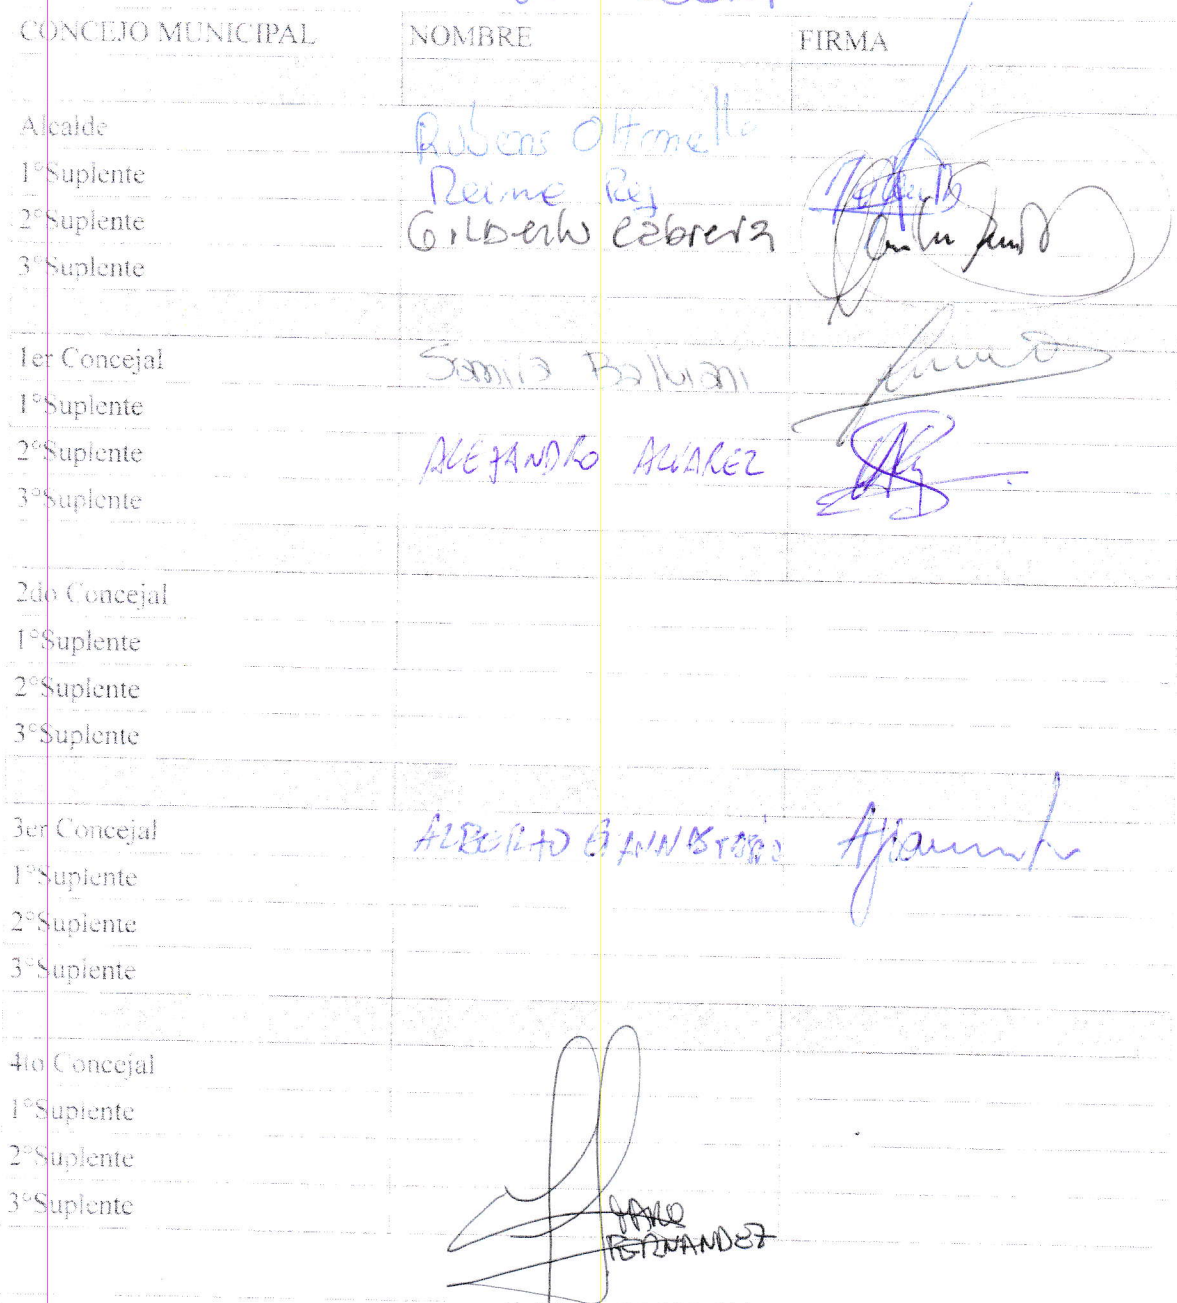 CONCEJO MUNICIPAL NOMBRE FIRMA
Alcalde Rubens Ottonello
1°Suplente Reine Rey
2°Suplente Gilberto Cabrera
3°Suplente
1er Concejal Samira
1°Suplente
2°Suplente ALEJANDRO ALVAREZ
3°Suplente
2do Concejal
1°Suplente
2°Suplente
3°Suplente
3er Concejal ALBERTO
1°Suplente
2°Suplente
3°Suplente
4to Concejal
1°Suplente
2°Suplente
3°Suplente
FERNANDEZ